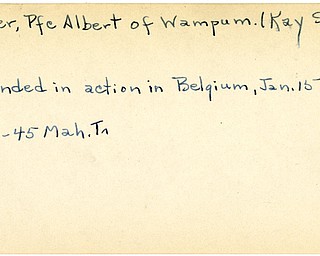 er, Pfc Albert of Wampum. (Kay S
nded in action in Belgium, Jan. 15
-45 Mah. Tr